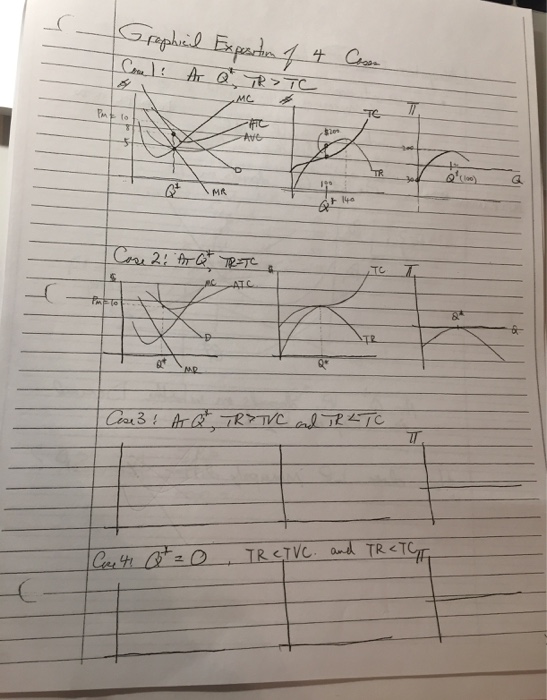 Graphical Exposition of 4 Cases
Case 1: At Q*, TR > TC
$ MC $ TC π
Pm = 10 ATC $200
8 AVC
5 D TR
Q* MR 100 140 Q* Q* (100) Q
Case 2: At Q*, TR = TC
$ MC ATC $ TC π
Pm = 10 Q* Q
D TR
Q* MR Q*
Case 3: At Q*, TR > TVC and TR < TC
π
Case 4: Q* = 0, TR < TVC. and TR < TC
π